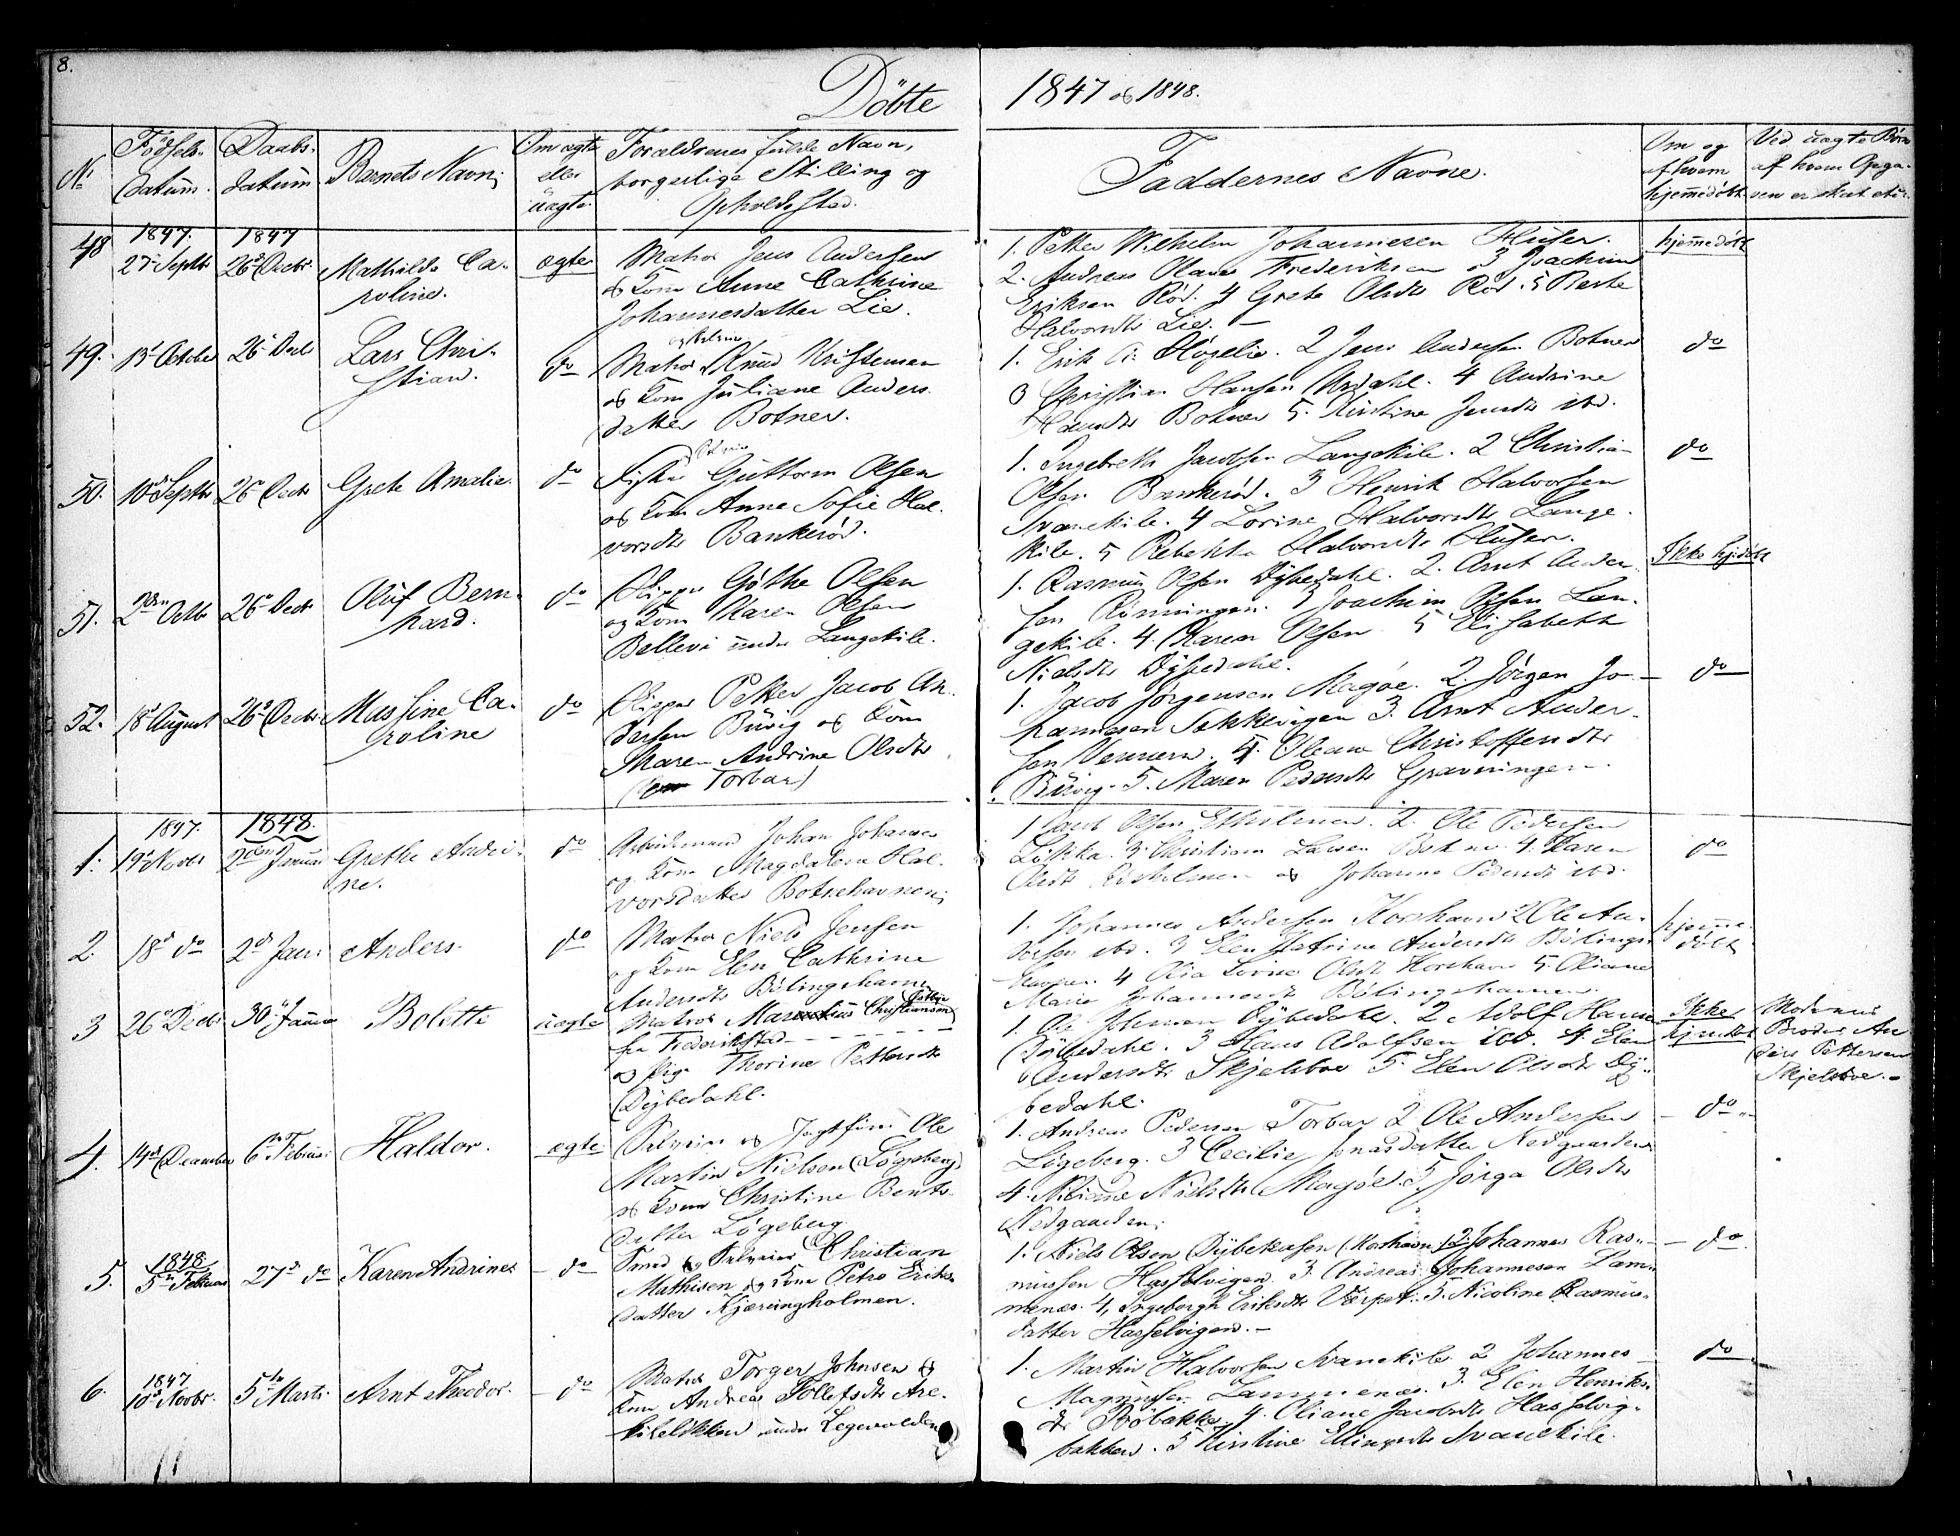 8.
Döbte 1847 og 1848.
Nº Födsels- datum. Daabs- datum Barnets Navn; Om ægte eller uægte Forældrenes fulde Navn, borgerlige Stilling og Opholdssted. Faddernes Navne. Om og af hvem hjem̄edöbt Ved uægte Börn af hvem
48 1847. 27 Septbr 1847 26 Decbr Mathilde Ca-
roline. ægte Matros Jens Andersen
og Kone Anne Cathrine
Johannesdatter Lie.
1. Petter Wilhelm Johannesen Huser.
2. Andreas Olaus Frederiksen 3 Joachim
Eriksen Röd. 4 Grete Olsdtr Röd. 5
Halvorsdtr Lie. —
hjem̄edöbt
49. 13 Octobr 26 Decbr Lars Chri-
stian. do Matros Knud Kristensen
og Kone Juliane Anders-
datter Botner.
1. Erik A. Högelie. 2 Jens Andersen Botner
3 Christian Hansen Ardahl. 4 Andrine
Botner 5. Kirstine Jensdtr ibd.
do
50. 10 Septbr 26 Decbr Grete Amalie. do Fisker Guttorm Olsen
og Kone Anne Sofie Hal-
vorsdtr Bankeröd.
1. Ingebreth Jacobsen Langekile. 2 Christian
Olsen Bankeröd. 3 Henrik Halvorsen
Svanekile. 4 Lorine Halvorsdtr Lange-
kile. 5 Rebekka Halvorsdtr Huser.
do
51. 2den Octbr 26 Decbr Oluf Bern-
hard. do Skipper Göthe Olsen
og Kone Karen Olsen
Bellevi under Langekile.
1. Rasmus Olsen Dybedahl. 2. Arnt Ander-
sen Rönningen. 3 Joachim Olsen Lan-
gekile. 4. Karen Olsen 5 Elisabeth
Nielsdtr Dybedahl.
Ikke hjdöbt
52. 18 August 26 Decbr. Massine Ca-
roline do Skipper Petter Jacob An-
dersen Buvig og Kone
Maren Andrine Olsdtr
Torbar)
1. Jacob Jörgensen Magöe. 2. Jörgen Jo-
hannesen 3. Arnt Ander-
sen 4. Oleane Christoffersdtr
Buvig. 5. Maren Pedersdtr Gravningen.
do
1. 1847. 19 Novbr 1848. 2den Januar Grethe Andri-
ne. do Arbeidsmand Johan Johansen
og Kone Magdalena Hal-
vorsdatter Botnehavnen;
1 Jacob Olsen 2. Ole Pedersen
Lökka. 3 Christian Larsen Botner. 4. Karen
Olsdtr og Johanne Pedersdtr ibd.
do
2. 18d do 2d Janr Anders. do Matros Niels Jensen
og Kone Elen Cathrine
Andersdtr Bölingshavn
1. Johannes Andersen Korshavn 2 Ole An-
dersen ibd. 3 Elen Katrine Andersdtr Bölings-
havnen. 4 Lovise Olsdtr Korshavn 5. Oliane
Marie Johannesdtr Bölingshavnen.
hjem̄e-
döbt
3 26 Decbr 30 Januar Bolette uægte Matros Christiansen
fra Frederikstad - - - -
og Pige Thorine Pettersdtr
Dybedahl.
1. Ole Johnsen Dybedahl. 2 Adolf Hansen
Dybedahl. 3 Hans Adolfsen ibd. 4. Elen
Andersdtr Skjelsboe 5. Elen Olsdtr Dy-
bedahl.
Ikke
hjmdöbt
Moderens
Broder An-
ders Pettersen
Skjelsboe. -
4. 14d December 6te Februar Haldor. ægte Selveier og Ole
Martin Nielsen (Lögeberg)
og Kone Christine Bents-
datter Lögeberg
1. Andreas Pedersen Torbar 2. Ole Andersen
Lögeberg. 3 Cecilie Jonasdatter Nedgaarden
4. Nielsdtr Magöe. 5. Jörga Olsdtr
Nedgaarden;
- do -
5. 1848. 5te Februar 27d do Karen Andrine - do Smed og Selveier Christian
Mathisen og Kone Petra Eriks-
datter Kjæringholmen.
1. Niels Olsen Dybekasen (Korshavn) 2 Johannes Ras-
mussen Hasselvigen. 3. Andreas Johannesen Lam-
menæs. 4, Ingeborgh Eriksdtr Værpet. 5. Nicoline Rasmus-
datter Hasselvigen. -
- do.
6. 1847 10d Novbr. 5te Marts Arnt Theodor. - do Matros Torger Johnsen og
Kone Andrea Tollefsdtr Are-
under Legevolden
1. Martin Halvorsen Svanekile. 2 Johannes
Magnussen Lammenæs. 3. Elen Henriks-
dtr Röbakke. 4. Oliane Jacobsdtr Hasselvig-
bakken. 5 Kirstine Svanekile.
do